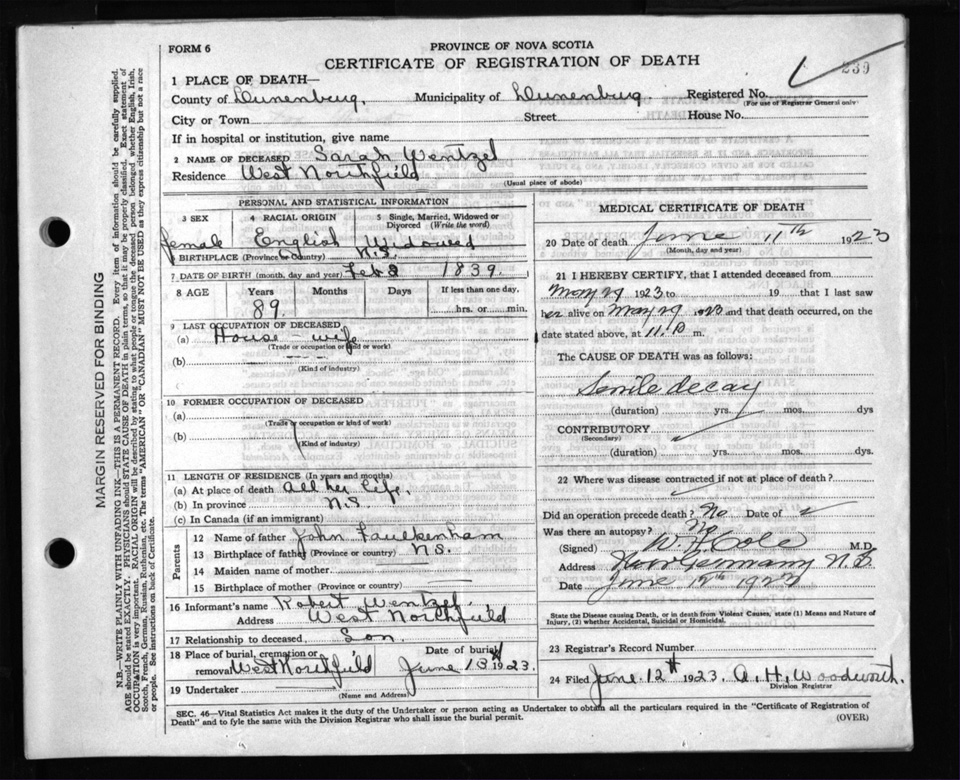 FORM 6
PROVINCE OF NOVA SCOTIA
CERTIFICATE OF REGISTRATION OF DEATH
239
1 PLACE OF DEATH—
County of Lunenburg. Municipality of Lunenburg. Registered No.
(For use of Registrar General only)
City or Town Street House No.
If in hospital or institution, give name
2 NAME OF DECEASED Sarah Wentzel
Residence West Northfield
(Usual place of abode)
PERSONAL AND STATISTICAL INFORMATION
3 SEX 4 RACIAL ORIGIN 5 Single, Married, Widowed or Divorced (Write the word)
female English Widowed
6 BIRTHPLACE (Province or Country) N.S.
7 DATE OF BIRTH (month, day and year) Feb 8 1839.
8 AGE Years Months Days If less than one day,
89. hrs. or min.
9 LAST OCCUPATION OF DECEASED
(a) House - wife
(Trade or occupation or kind of work)
(b)
(Kind of industry)
10 FORMER OCCUPATION OF DECEASED
(a)
(Trade or occupation or kind of work)
(b)
(Kind of industry)
11 LENGTH OF RESIDENCE (In years and months)
(a) At place of death all her life.
(b) In province N.S.
(c) In Canada (if an immigrant)
Parents
12 Name of father John Faulkenham
13 Birthplace of father (Province or country) N.S.
14 Maiden name of mother
15 Birthplace of mother (Province or country)
16 Informant's name Robert Wentzel.
Address West Northfield
17 Relationship to deceased, Son.
18 Place of burial, cremation or removal West Northfield Date of burial June 13 1923.
19 Undertaker
(Name and Address)
MEDICAL CERTIFICATE OF DEATH
20 Date of death June 11th 1923
(Month, day and year)
21 I HEREBY CERTIFY, that I attended deceased from
May 29 1923 to 19 that I last saw
her alive on May 29 1923 and that death occurred, on the
date stated above, at 11. m.
The CAUSE OF DEATH was as follows:
Senile decay
(duration) yrs. mos. dys
CONTRIBUTORY
(Secondary)
(duration) yrs. mos. dys.
22 Where was disease contracted if not at place of death?
Did an operation precede death? No Date of
Was there an autopsy? No
(Signed) Cole M.D.
Address New Germany N.S.
Date June 12th 1923
State the Disease causing Death, or in death from Violent Causes, state (1) Means and Nature of
Injury, (2) whether Accidental, Suicidal or Homicidal.
23 Registrar's Record Number
24 Filed June 12th 1923 A. H. Woodworth.
Division Registrar
SEC. 46—Vital Statistics Act makes it the duty of the Undertaker or person acting as Undertaker to obtain all the particulars required in the "Certificate of Registration of
Death" and to fyle the same with the Division Registrar who shall issue the burial permit. (OVER)
MARGIN RESERVED FOR BINDING
N.B.—WRITE PLAINLY WITH UNFADING INK—THIS IS A PERMANENT RECORD. Every item of information should be carefully supplied.
AGE should be stated EXACTLY. PHYSICIANS should STATE CAUSE OF DEATH in plain terms, so that it may be properly classified. Exact statement of
OCCUPATION is very important. RACIAL ORIGIN will be described by stating to what people or tongue the deceased person belonged whether English, Irish,
Scotch, French, German, Russian, Ruthenian, etc. The terms "AMERICAN" OR "CANADIAN" MUST NOT BE USED as they express citizenship but not a race
or people. See instructions on back of Certificate.